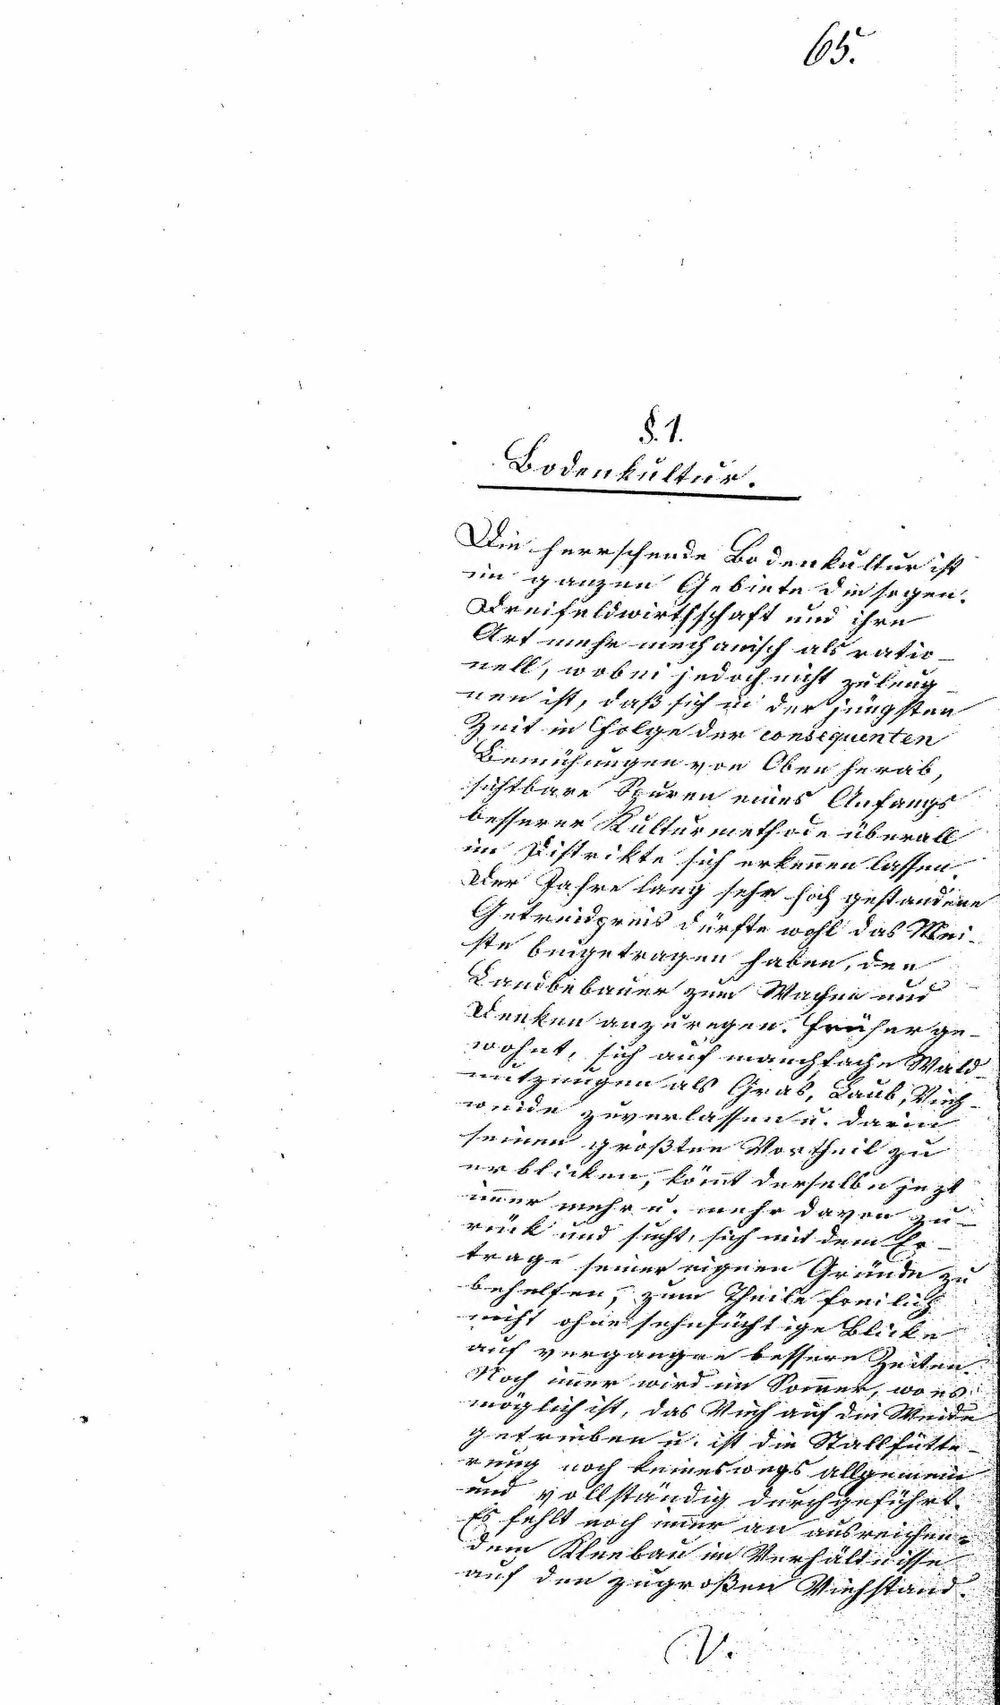 65.
§. 1.
Bodenkultur.
Die herrschende Bodenkultur ist
im ganzen Gebiete die sogen.
Dreifeldwirthschaft und ihre
Art mehr mechanisch als ratio-
nell, wobei jedoch nicht zu leug-
nen ist, daß sich in der jüngsten
Zeit in Folge der consequenten
Bemühungen von Oben herab,
sichtbare Spuren eines Anfangs
besserer Kulturmethode überall
im Distrikte sich erkennen lassen.
Der Jahre lang sehr hoch gestandene
Getreidpreis dürfte wohl das Mei-
ste beigetragen haben, den
Landbebauer zum Wachen und
Denken anzuregen. Früher ge-
wohnt, sich auf manchfache Wald-
nutzungen als Gras, Laub, Vieh-
weide zu verlassen u. darin
seinen größten Vortheil zu
erblicken, kömt derselbe jezt
imer mehr u. mehr davon zu-
rück und sucht, sich mit dem Er-
trage seiner eignen Gründe zu
behelfen, zum Theile freilich
nicht ohne sehnsüchtige Blicke
auf vergangne bessere Zeiten.
Noch imer wird im Somer, wo es
möglich ist, das Vieh auf die Weide
getrieben u. ist die Stallfütte-
rung noch keineswegs allgemein
und vollständig durchgeführt.
Es fehlt noch imer an ausreichen-
dem Kleebau im Verhältnisse
auf den zu großen Viehstand.
V.